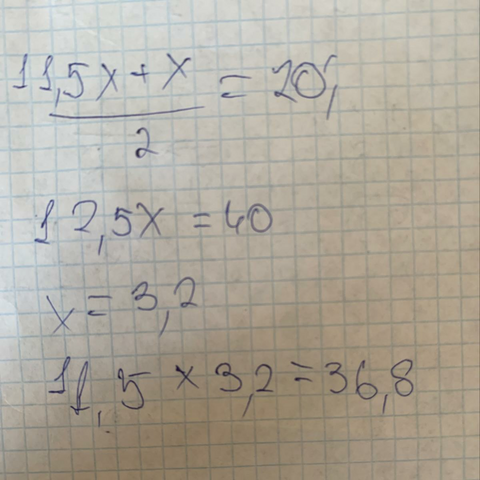 11,5x + x = 20,
2
12,5x = 40
x = 3,2
11,5 × 3,2 = 36,8